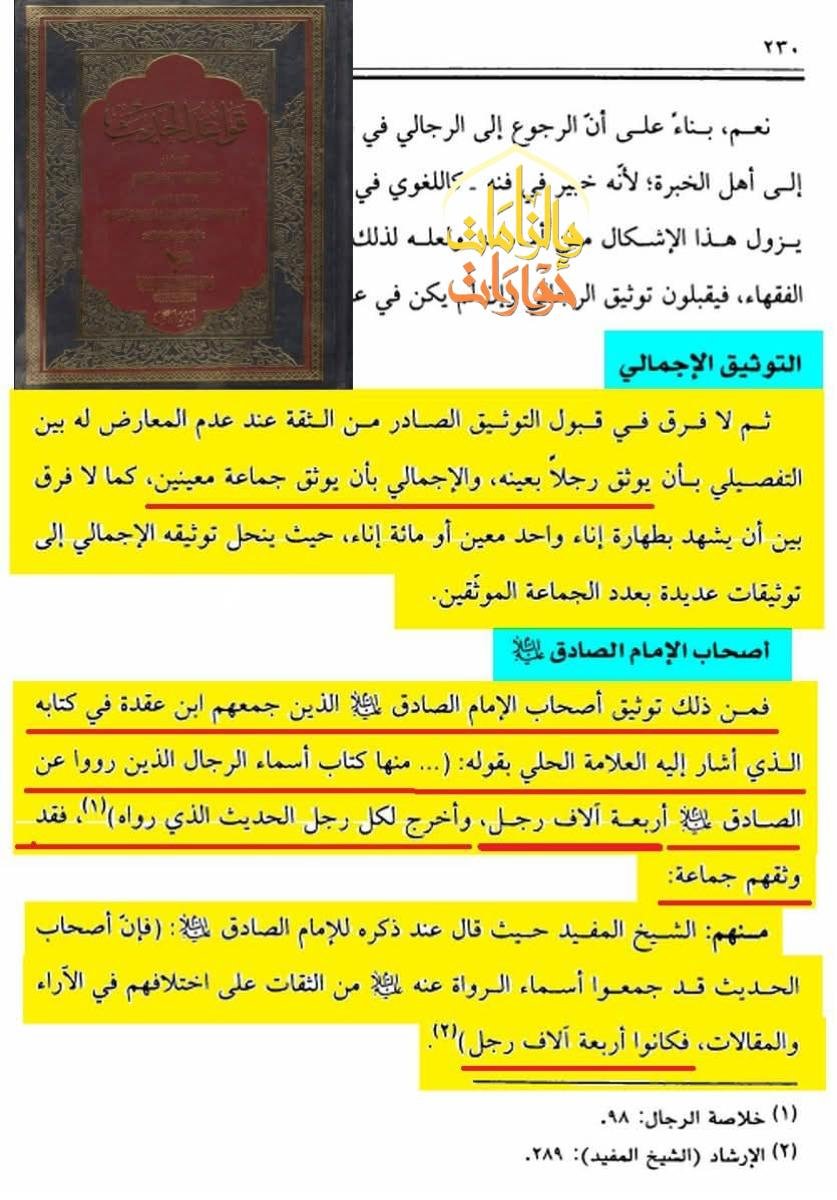 ٢٣٠
قواعد الحديث
نعم، بناءً على أنّ الرجوع إلى الرجالي في
إلى أهل الخبرة؛ لأنّه خبير في فنه ـ كاللغوي في
يزول هذا الإشكال من لعله لذلك
الفقهاء، فيقبلون توثيق الرجالي وإن لم يكن في عـ
وإلزامات
حوارات
التوثيق الإجمالي
ثم لا فرق في قبول التوثيق الصادر من الثقة عند عدم المعارض له بين
التفصيلي بأن يوثق رجلاً بعينه، والإجمالي بأن يوثق جماعة معينين، كما لا فرق
بين أن يشهد بطهارة إناء واحد معين أو مائة إناء، حيث ينحل توثيقه الإجمالي إلى
توثيقات عديدة بعدد الجماعة الموثّقين.
أصحاب الإمام الصادق عليه السلام
فمن ذلك توثيق أصحاب الإمام الصادق عليه السلام الذين جمعهم ابن عقدة في كتابه
الذي أشار إليه العلامة الحلي بقوله: (... منها كتاب أسماء الرجال الذين رووا عن
الصادق عليه السلام أربعة آلاف رجل، وأخرج لكل رجل الحديث الذي رواه)(١)، فقد
وثقهم جماعة:
منهم: الشيخ المفيد حيث قال عند ذكره للإمام الصادق عليه السلام: (فإنّ أصحاب
الحديث قد جمعوا أسماء الرواة عنه عليه السلام من الثقات على اختلافهم في الآراء
والمقالات، فكانوا أربعة آلاف رجل)(٢).
(١) خلاصة الرجال: ٩٨.
(٢) الإرشاد (الشيخ المفيد): ٢٨٩.